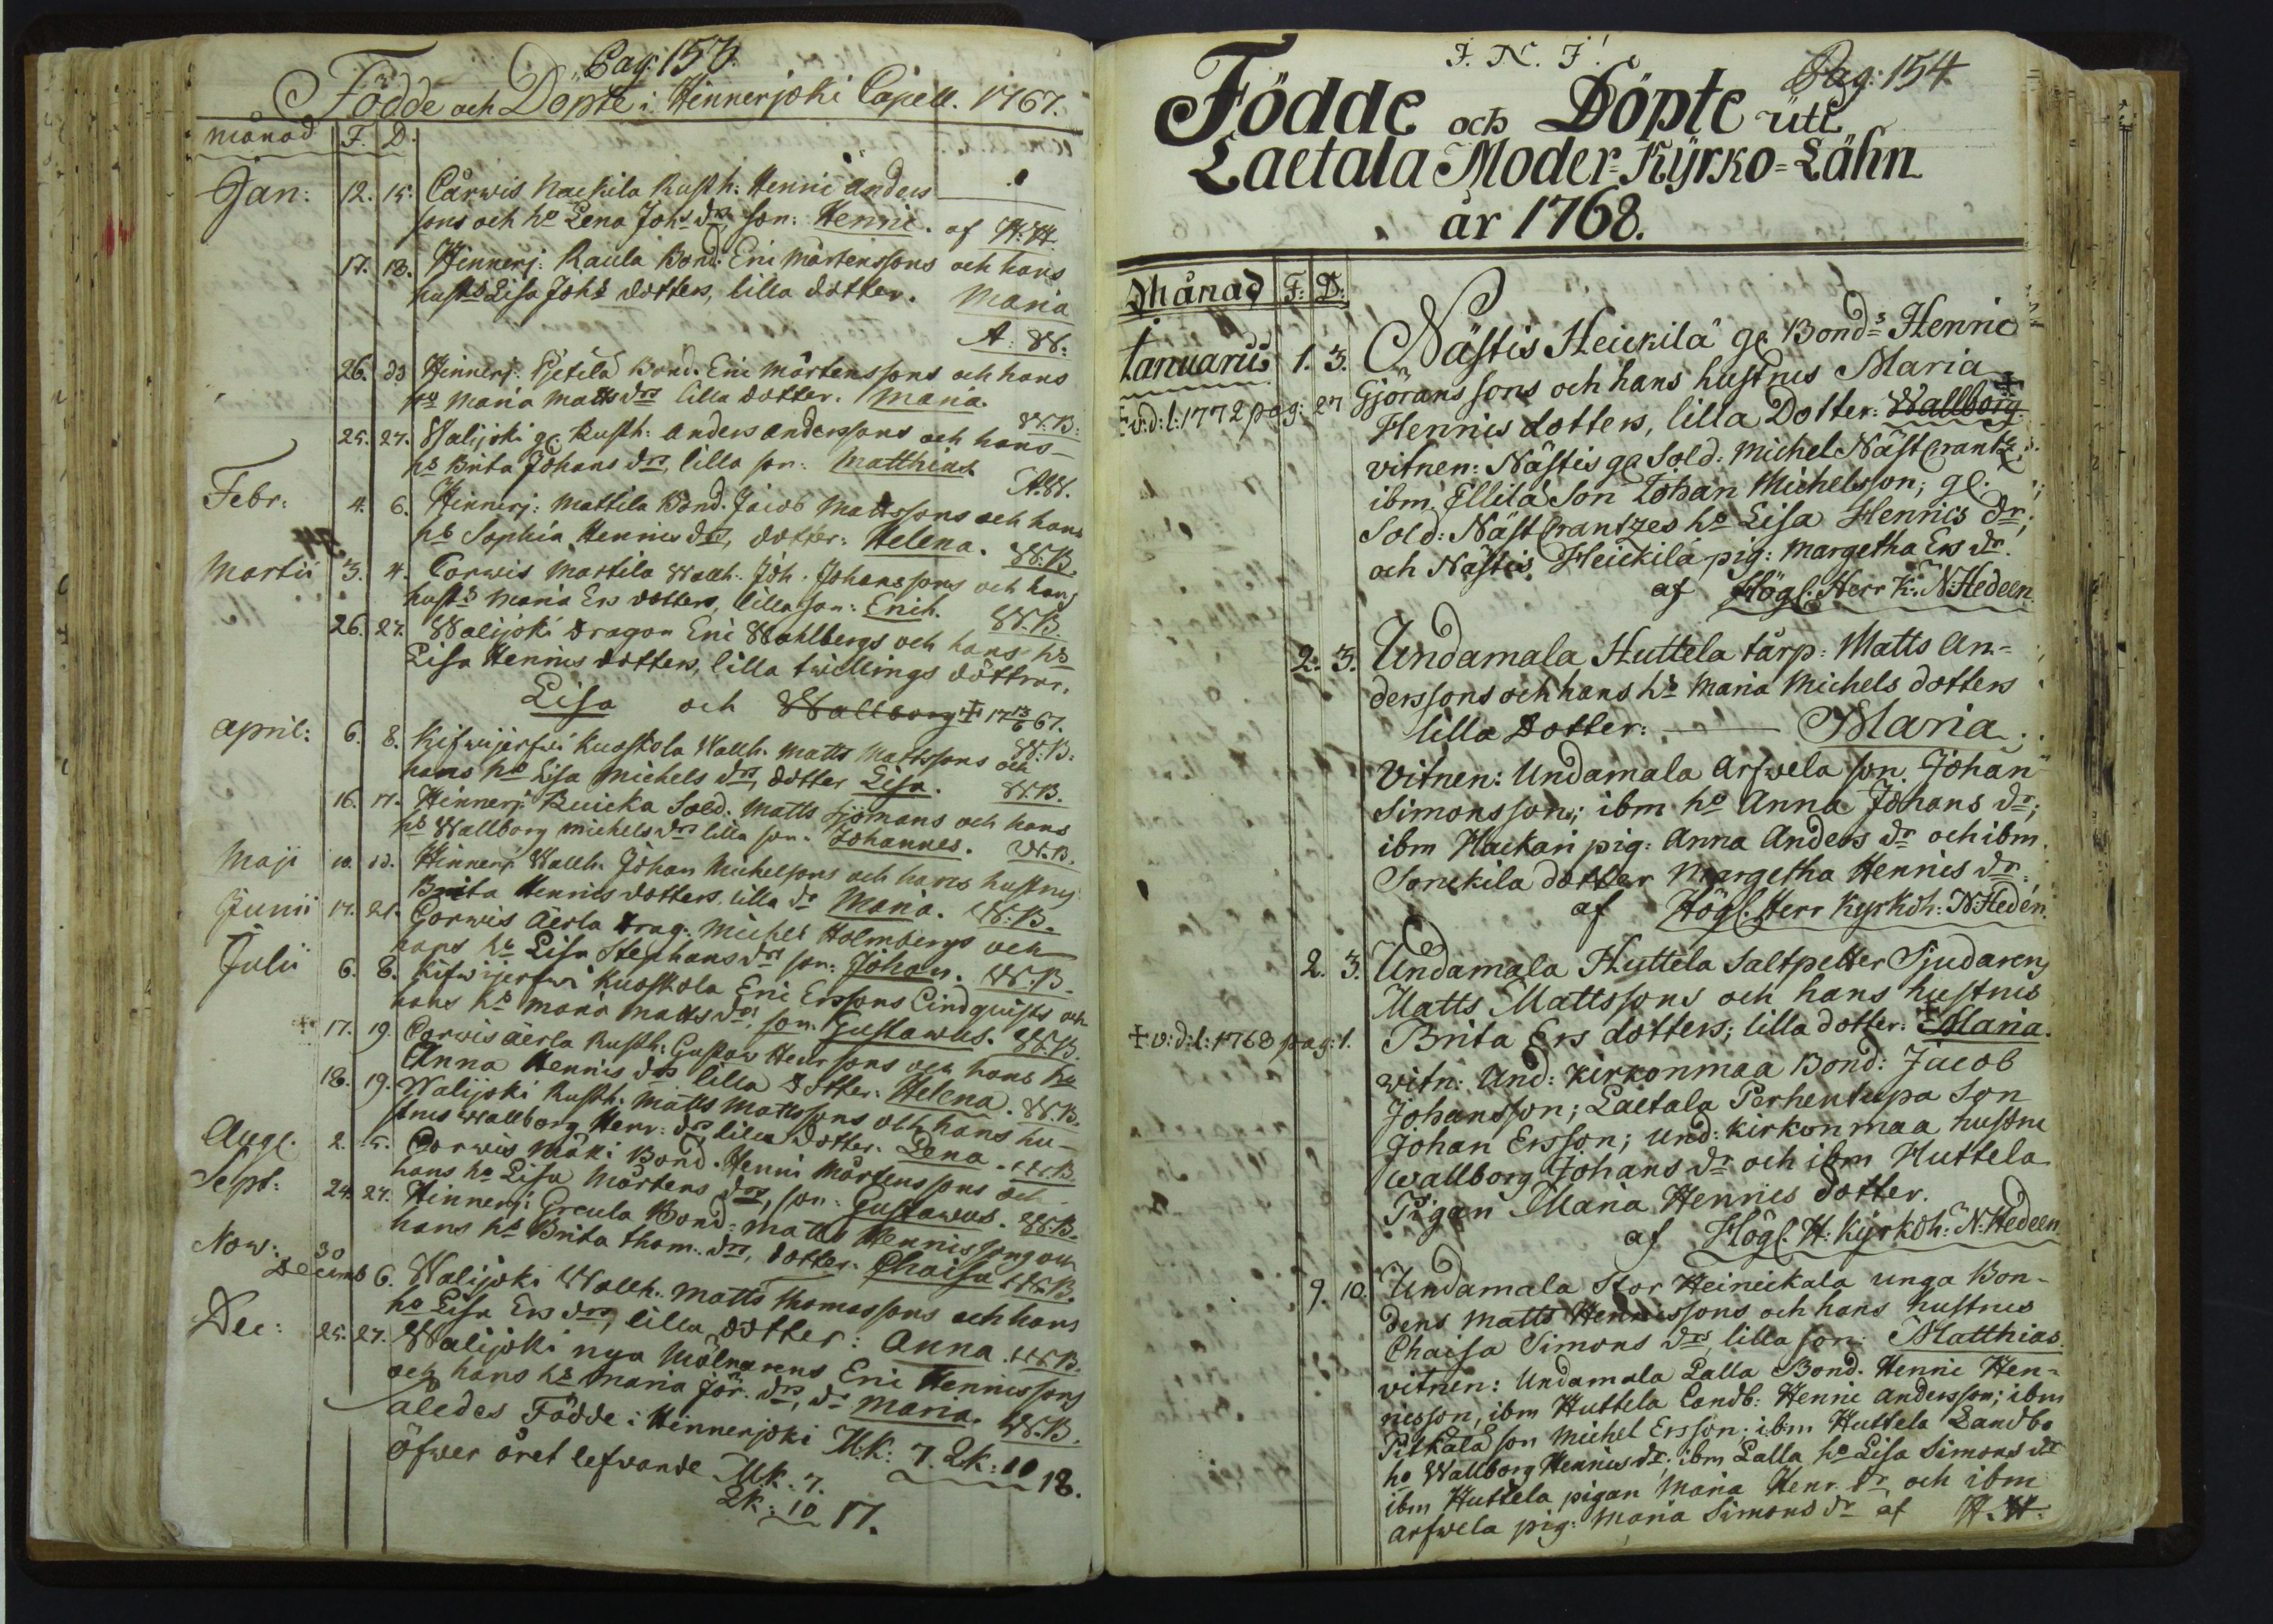 Pag: 153
Födde och Döpte i Hinnerjoki Capell. 1767.
månad F. D.
Jan: 12. 15. Cårwis Nackila Rusth: Henric Anders
sons och ho Lena Johs drs son: Henric. af H: H
17. 18. Hinnerj: Raula Bond: Eric Mårtenssons och hans
hustrs Lisa Johs dotters, lilla dotter. Maria
A: W:
26. do Hinnerj: Pietilä Bond. Eric Mårtenssons och hans
ho Maria Matts drs lilla dotter. Maria.
W: B:
25. 27. Walijoki ge. Rusth: Anders Anderssons och hans
hs Brita Johans drs, lilla son: Matthias.
A. W.
Febr: 4. 6. Hinnerj: Mattila Bond. Jacob Mattssons och hans
hs Sophia Henrics drs, dotter: Helena. W: B.
Martii 3. 4. Corwis Martila Wallh. Joh. Johanssons och hans
hustrs Maria Ers dotters, lilla son: Erich. W. B.
26. 27. Walijoki Dragon Eric Wahlbergs och hans hs
Lisa Henrics dotters, lilla twillings döttrar.
Lisa och Wallborg + 17 13/6 67.
W: B:
April: 6. 8. Kifwijerfwi Kuoskola Wallh. Matts Mattssons och
hans hs Lisa Michels drs, dotter Lisa. W. B.
16. 17. Hinnerj: Ruicka Sold. Matts Sjömans och hans
hs Wallborg Michels drs lilla son. Johannes. W. B.
Maji 10. do. Hinnerj: Wallh. Johan Michelsons och hans hustrus
Brita Henrics dotters, lilla dr Maria. W: B.
Junii 17. 21. Corwis Äerla Drag: Michel Holmbergs och
hans hs Lisa Stephans drs son: Johan. W. B.
Julii 6. 8. Kifwijerfwi Kuoskola Eric Erssons Lindquists och
hans hs Maria Matts drs, son. Gustawus. W. B.
17. 19. Corwis Äerla Rusth: Gustav Henrssons och hans ho
Anna Henrics drs lilla Dotter. Helena. W. B.
18. 19. Walijoki Rusth: Matts Mattssons och hans hu-
strus Wallborg Henr: drs, lilla dotter. Lena. W. B.
Augt. 2. 5. Corwis Mäki Bond. Henric Mårtenssons och
hans ho Lisa Mårtens drs, son: Gustawus. W. B.
Sept: 24. 27. Hinnerj: Greula Bond: Matts Henricssons och
hans hs Brita Thom. drs, dotter. Chaisa W. B.
Now: 30 Decemb 6. Walijoki Wallh. Matts Thomassons och hans
ho Lisa Ers drs, lilla dotter: Anna. W. B.
Dec: 25. 27. Walijoki nya Mölnarens Eric Henricssons
och hans hs Maria Jör. drs, dr Maria. W. B.
Således Födde i Hinnerjoki M.K: 7. Q.K: 11 18.
öfwer året lefwande M.K. 7.
Q.K. 10 17.
J. N. J!
Pag: 154
Födde och Döpte uti
Laetala Moder-Kyrko-Lähn
år 1768.
Månad F: D:
Januarii 1. 3. Nästis Heickilä ge Bonds Henric
Gjörans sons och hans hustrus Maria
+ v: d: l: 1772 pag: 27 Hennis dotters, lilla Dotter: Wallborg. +
vitnen: Nästis ge Sold: Michel Näst Crantz;
ibm. Ellilä Son Johan Michelsson; ge.
Sold: Näst Crantzes ho Lisa Henrics dr;
och Nästis Heickilä pig: Margetha Ers dr.
af Högl. Herr K: N: Hedeen.
2. 3. Undamala Huttela tårp: Matts An-
derssons och hans hs Maria Michels dotters
lilla Dotter: Maria.
Vitnen: Undamala Arfwela son. Johan
Simonsson; ibm ho Anna Johans dr;
ibm Hackari pig: Anna Anders dr och ibm
Sonckila dotter Margetha Henrics dr.
af Högl. Herr Kyrkoh: N: Hedén.
2. 3. Undamala Huttela Saltpetter Sjudarens
Matts Mattssons och hans hustrus
+ v: d: l: 1768 pag: 1. Brita Ers dotters; lilla dotter: Maria.
witn: Und: Kirkonmaa Bond: Jacob
Johansson; Laetala Perhentupa Son
Johan Ersson; Und: Kirkonmaa hustru
Wallborg Johans dr och ibm Huttela
Pigan Maria Henrics dotter.
af Högl. H: Kyrkoh: N: Hedeen.
9. 10. Undamala Stor Heinickala unga Bon-
dens Matts Henrics sons och hans hustrus
Chaisa Simons drs, lilla son: Matthias.
vitnen: Undamala Lalla Bond. Henric Hen-
ricsson, ibm Huttela Landb: Henric Andersson; ibm
Pitkälä son Michel Ersson; ibm Huttela Landbo
ho Wallborg Henrics dr; ibm Lalla ho Lisa Simons dr
ibm Huttela pigan Maria Henr. dr, och ibm
Arfwela pig: Maria Simons dr af H. H.